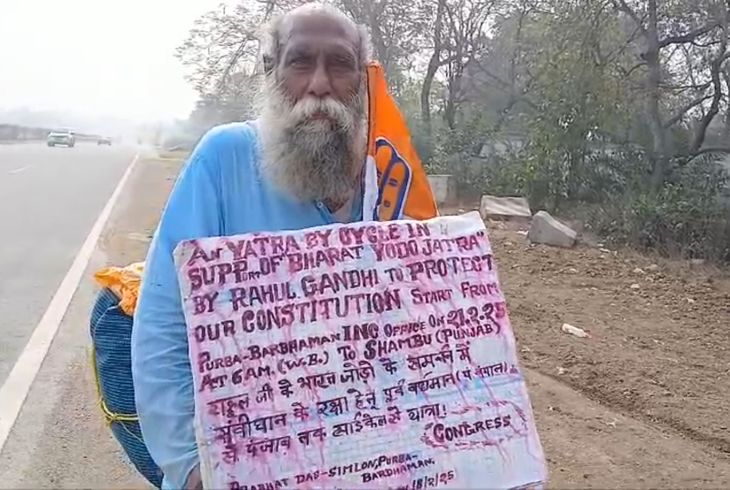 "AN YATRA BY CYCLE IN
SUPPORT OF BHARAT YODO JATRA"
BY RAHUL GANDHI TO PROTECT
OUR CONSTITUTION START FROM
PURBA-BARDHAMAN INC OFFICE ON 21.2.25
AT 6AM. (W.B.) TO SHAMBU (PUNJAB)
राहुल जी के भारत जोड़ो के समर्थन में
संवीधान के रक्षा हेतु पूर्व बर्धमान (प. बंगाल)
से पंजाब तक साईकिल से यात्रा!
(CONGRESS)
PRABHAT DAS-SIMLON, PURBA-
BARDHAMAN.
18/2/25